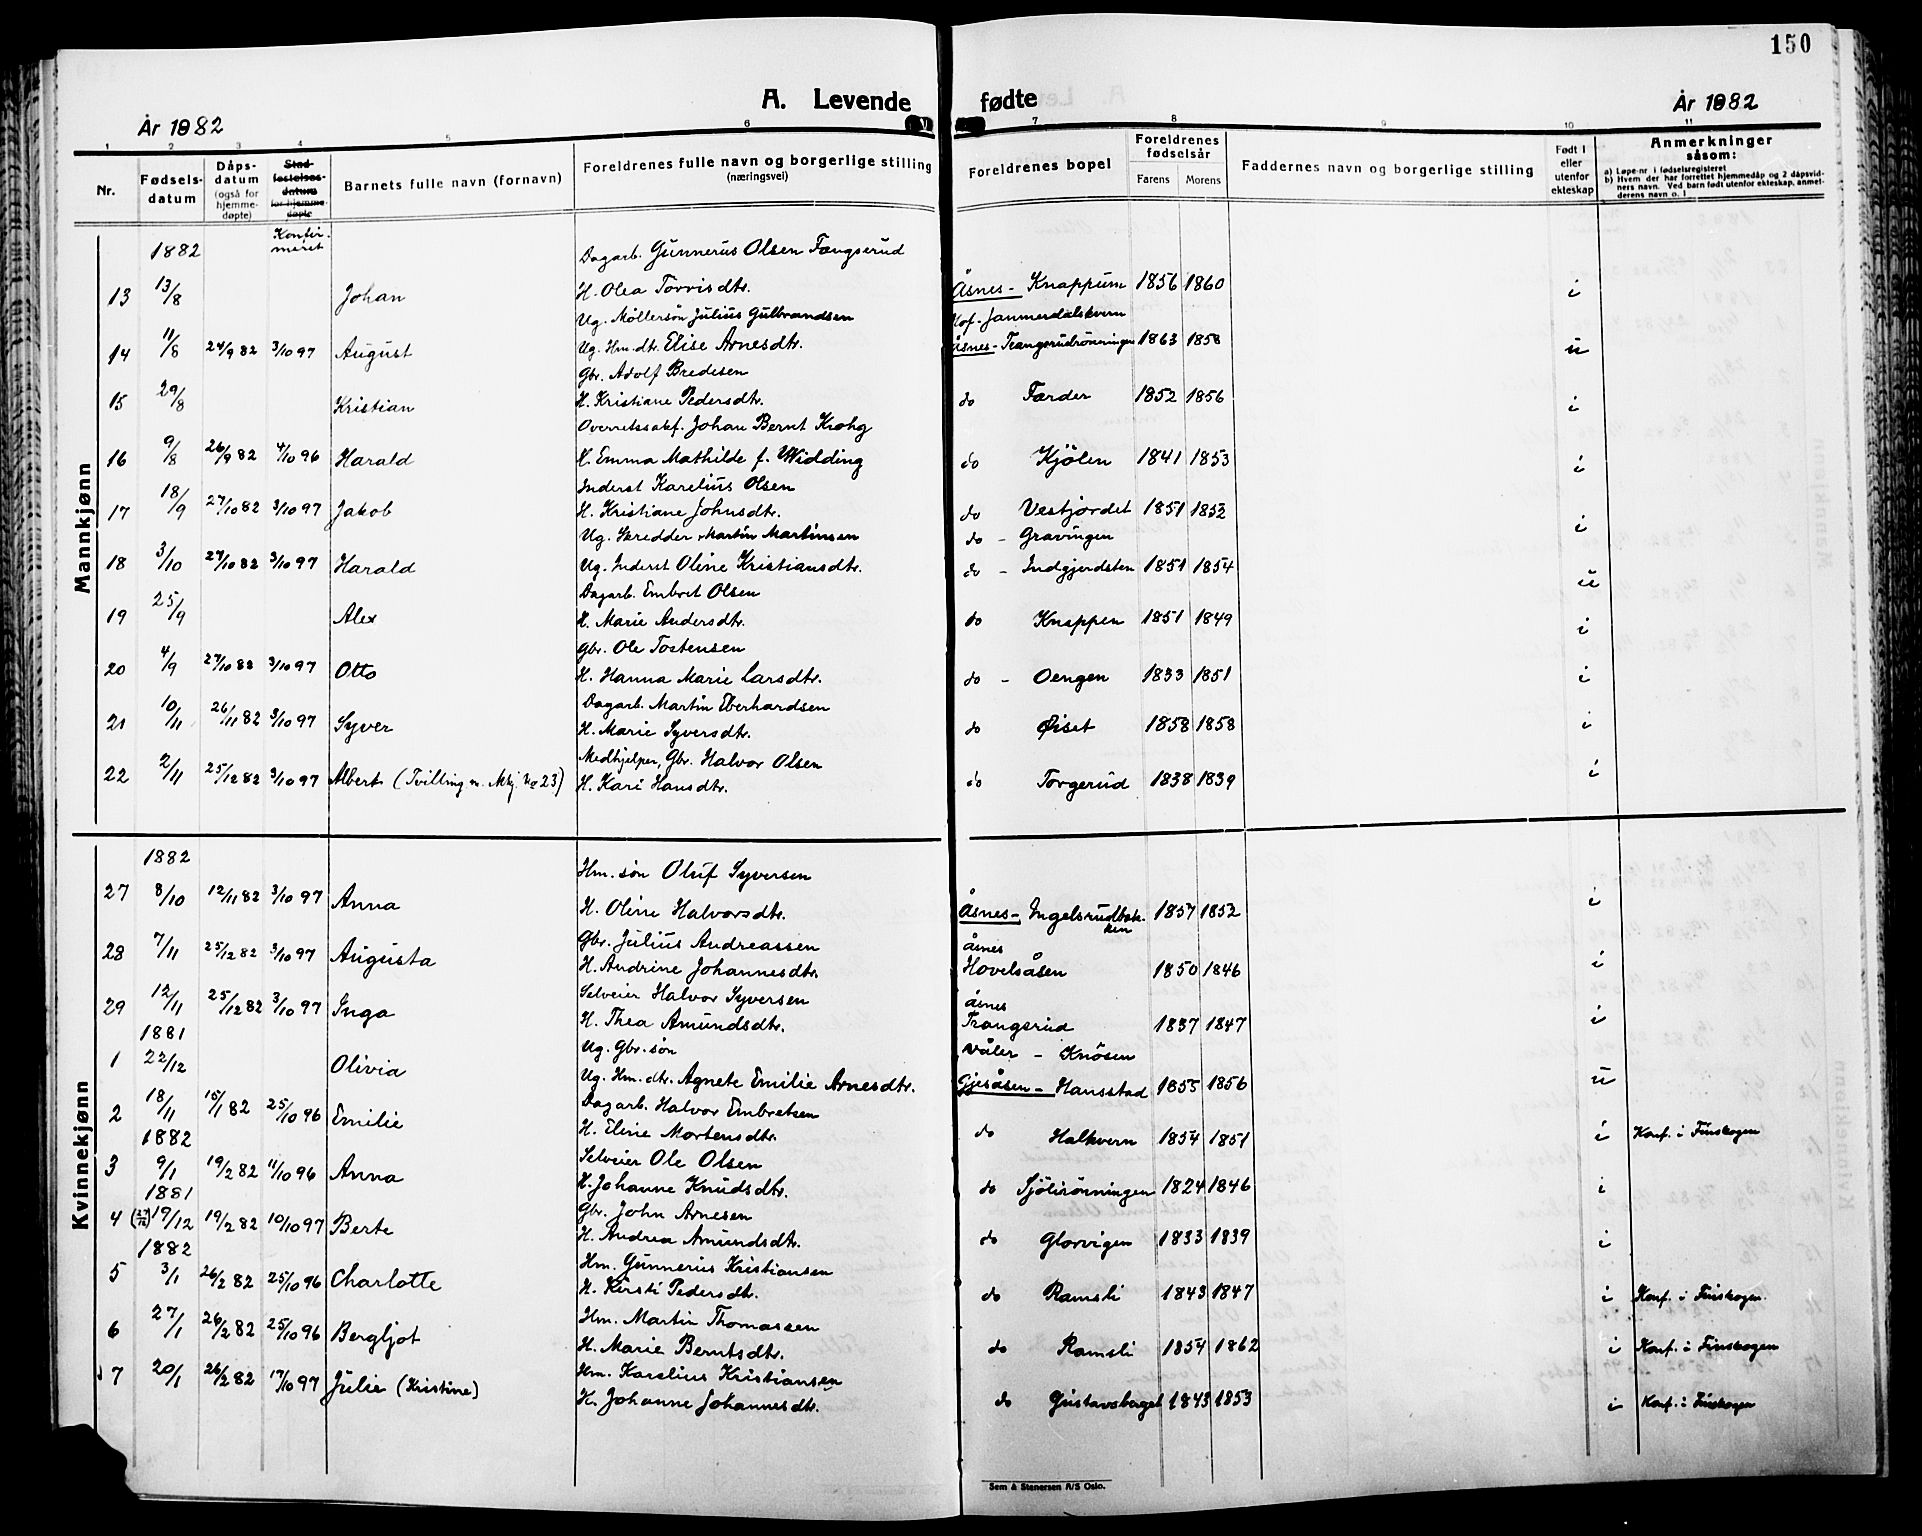 150
A. Levende fødte
År 1882
År 1882
1 2 3 4 5 6 7 8 9 10 11
Nr. Fødselsdatum Dåpsdatum (også for hjemmedøpte) Stadfestelsesdatum for hjemmedøpte Barnets fulle navn (fornavn) Foreldrenes fulle navn og borgerlige stilling (næringsvei) Foreldrenes bopel Foreldrenes fødselsår Farens Morens Faddernes navn og borgerlige stilling Født i eller utenfor ekteskap Anmerkninger såsom:
a) Løpe-nr. i fødselsregisteret
b) Hvem der har forrettet hjemmedåp og 2 dåpsvidners navn. Ved barn født utenfor ekteskap, anmelderens navn o. l.
Konfirmeret
Mannkjønn
1882 Dagarb. Gunnerus Olsen Fangserud
13 13/8 Johan H. Olea Torrisdtr. Åsnes - Knappum 1856 1860 i
Ug. Møllersøn Julius Gulbrandsen Hof. Jammerdalskvern
14 11/8 24/9 82 3/10 97 August Ug. Hm. dtr. Elise Arnesdtr. Åsnes - Trangsrudrönningen 1863 1858 u
Gbr. Adolf Bredesen
15 29/8 Kristian H. Kristiane Pedersdtr. do Færder 1852 1856 i
Overretssakf. Johan Bernt Krohg
16 9/8 26/9 82 4/10 96 Harald H. Emma Mathilde f. Widding do Kjölen 1841 1853 i
Inderst Karelius Olsen
17 18/9 27/10 82 3/10 97 Jakob H. Kristiane Johnsdtr. do Vestjordet 1851 1852 i
Ug. Skredder Martin Martinsen do - Gravingen
18 3/10 27/10 82 3/10 97 Harald Ug. Inderst Oline Kristiansdtr. do - Indgjerdsten 1851 1854 u
Dagarb. Embret Olsen
19 25/9 Alex H. Marie Andersdtr. do Knappen 1851 1849 i
Gbr. Ole Tostensen
20 4/9 27/10 82 3/10 97 Otto H. Hanna Marie Larsdtr. do - Oengen 1833 1851 i
Dagarb. Martin Eberhardsen
21 10/11 26/11 82 3/10 97 Syver H. Marie Syversdtr. do Øiset 1858 1858 i
Medhjelper, Gbr. Halvor Olsen
22 2/11 25/12 82 3/10 97 Albert (Tvilling m. Mkj. No 23) H. Kari Hansdtr. do Torgerud 1838 1839 i
Kvinnekjønn
1882 Hm. søn Oluf Syversen
27 8/10 12/11 82 3/10 97 Anna H. Oline Halvorsdtr. Åsnes - Ingelsrudbakken 1857 1852 i
Gbr. Julius Andreassen åsnes
28 7/11 25/12 82 3/10 97 Augusta H. Andrine Johannesdtr. Hovelsåsen 1850 1846 i
Selveier Halvor Syversen åsnes
29 12/11 25/12 82 3/10 97 Inga H. Thea Amundsdtr. Trangsrud 1837 1847 i
1881 Ug. Gbr. søn Våler - Knösen
1 22/12 Olivia Ug. Hm. dtr. Agnete Emilie Arnesdtr. Gjesåsen - Hansstad 1855 1856 u
Dagarb. Halvor Embretsen
2 18/11 15/1 82 25/10 96 Emilie H. Eline Mortensdtr. do Halkvern 1854 1851 i Konf. i Finskogen
1882 Selveier Ole Olsen
3 9/1 19/2 82 11/10 96 Anna H. Johanne Knudsdtr. do Sjölirönningen 1824 1846 i
1881 Gbr. John Arnesen
4 19/12 19/2 82 10/10 97 Berte H. Andrea Amundsdtr. do Glorvigen 1833 1839 i
1882 Hm. Gunnerius Kristiansen
5 3/1 26/2 82 25/10 96 Charlotte H. Kirsti Pedersdtr. do Ramsli 1843 1847 i Konf. i Finskogen.
Hm. Martin Thomassen
6 27/1 26/2 82 25/10 96 Bergljot H. Marie Berntsdtr. do Ramsli 1854 1862 i Konf. i Finskogen
Hm. Karelius Kristiansen
7 20/1 26/2 82 17/10 97 Julie (Kristine) H. Johanne Johannesdtr. do Gustavsberget 1843 1853 i Konf. i Finskogen
Sem & Stenersen A/S Oslo.